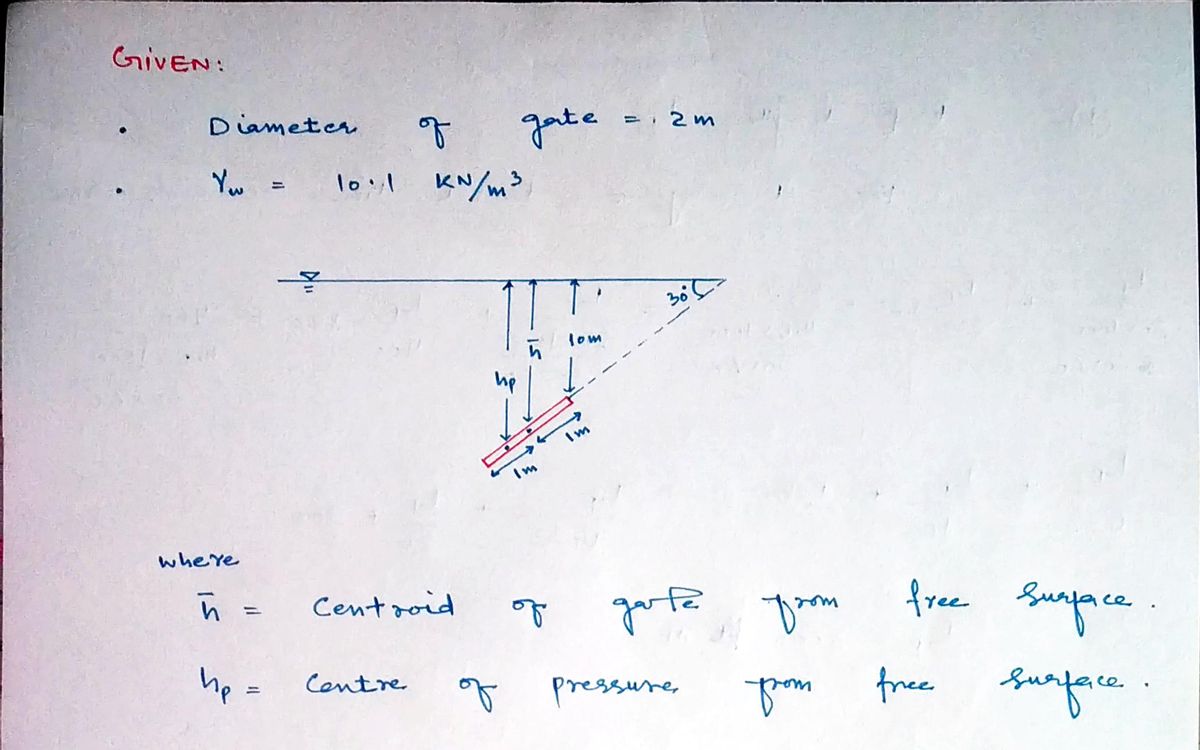 GIVEN:
• Diameter of gate = 2m
• γw = 10.1 KN/m³
30°
h̄ 10m
hp
1m
1m
where
h̄ = Centroid of gate from free surface.
hp = Centre of pressure from free surface.